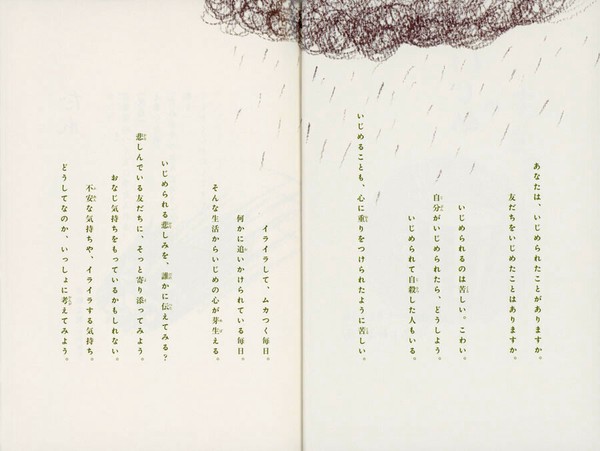 あなたは、いじめられたことがありますか。
友だちをいじめたことはありますか。
いじめられるのは苦しい。こわい。
自分がいじめられたら、どうしよう。
いじめられて自殺した人もいる。
いじめることも、心に重りをつけられたように苦しい。
イライラして、ムカつく毎日。
何かに追いかけられている毎日。
そんな生活からいじめの心が芽生える。
いじめられる悲しみを、誰かに伝えてみる?
悲しんでいる友だちに、そっと寄り添ってみよう。
おなじ気持ちをもっているかもしれない。
不安な気持ちや、イライラする気持ち。
どうしてなのか、いっしょに考えてみよう。